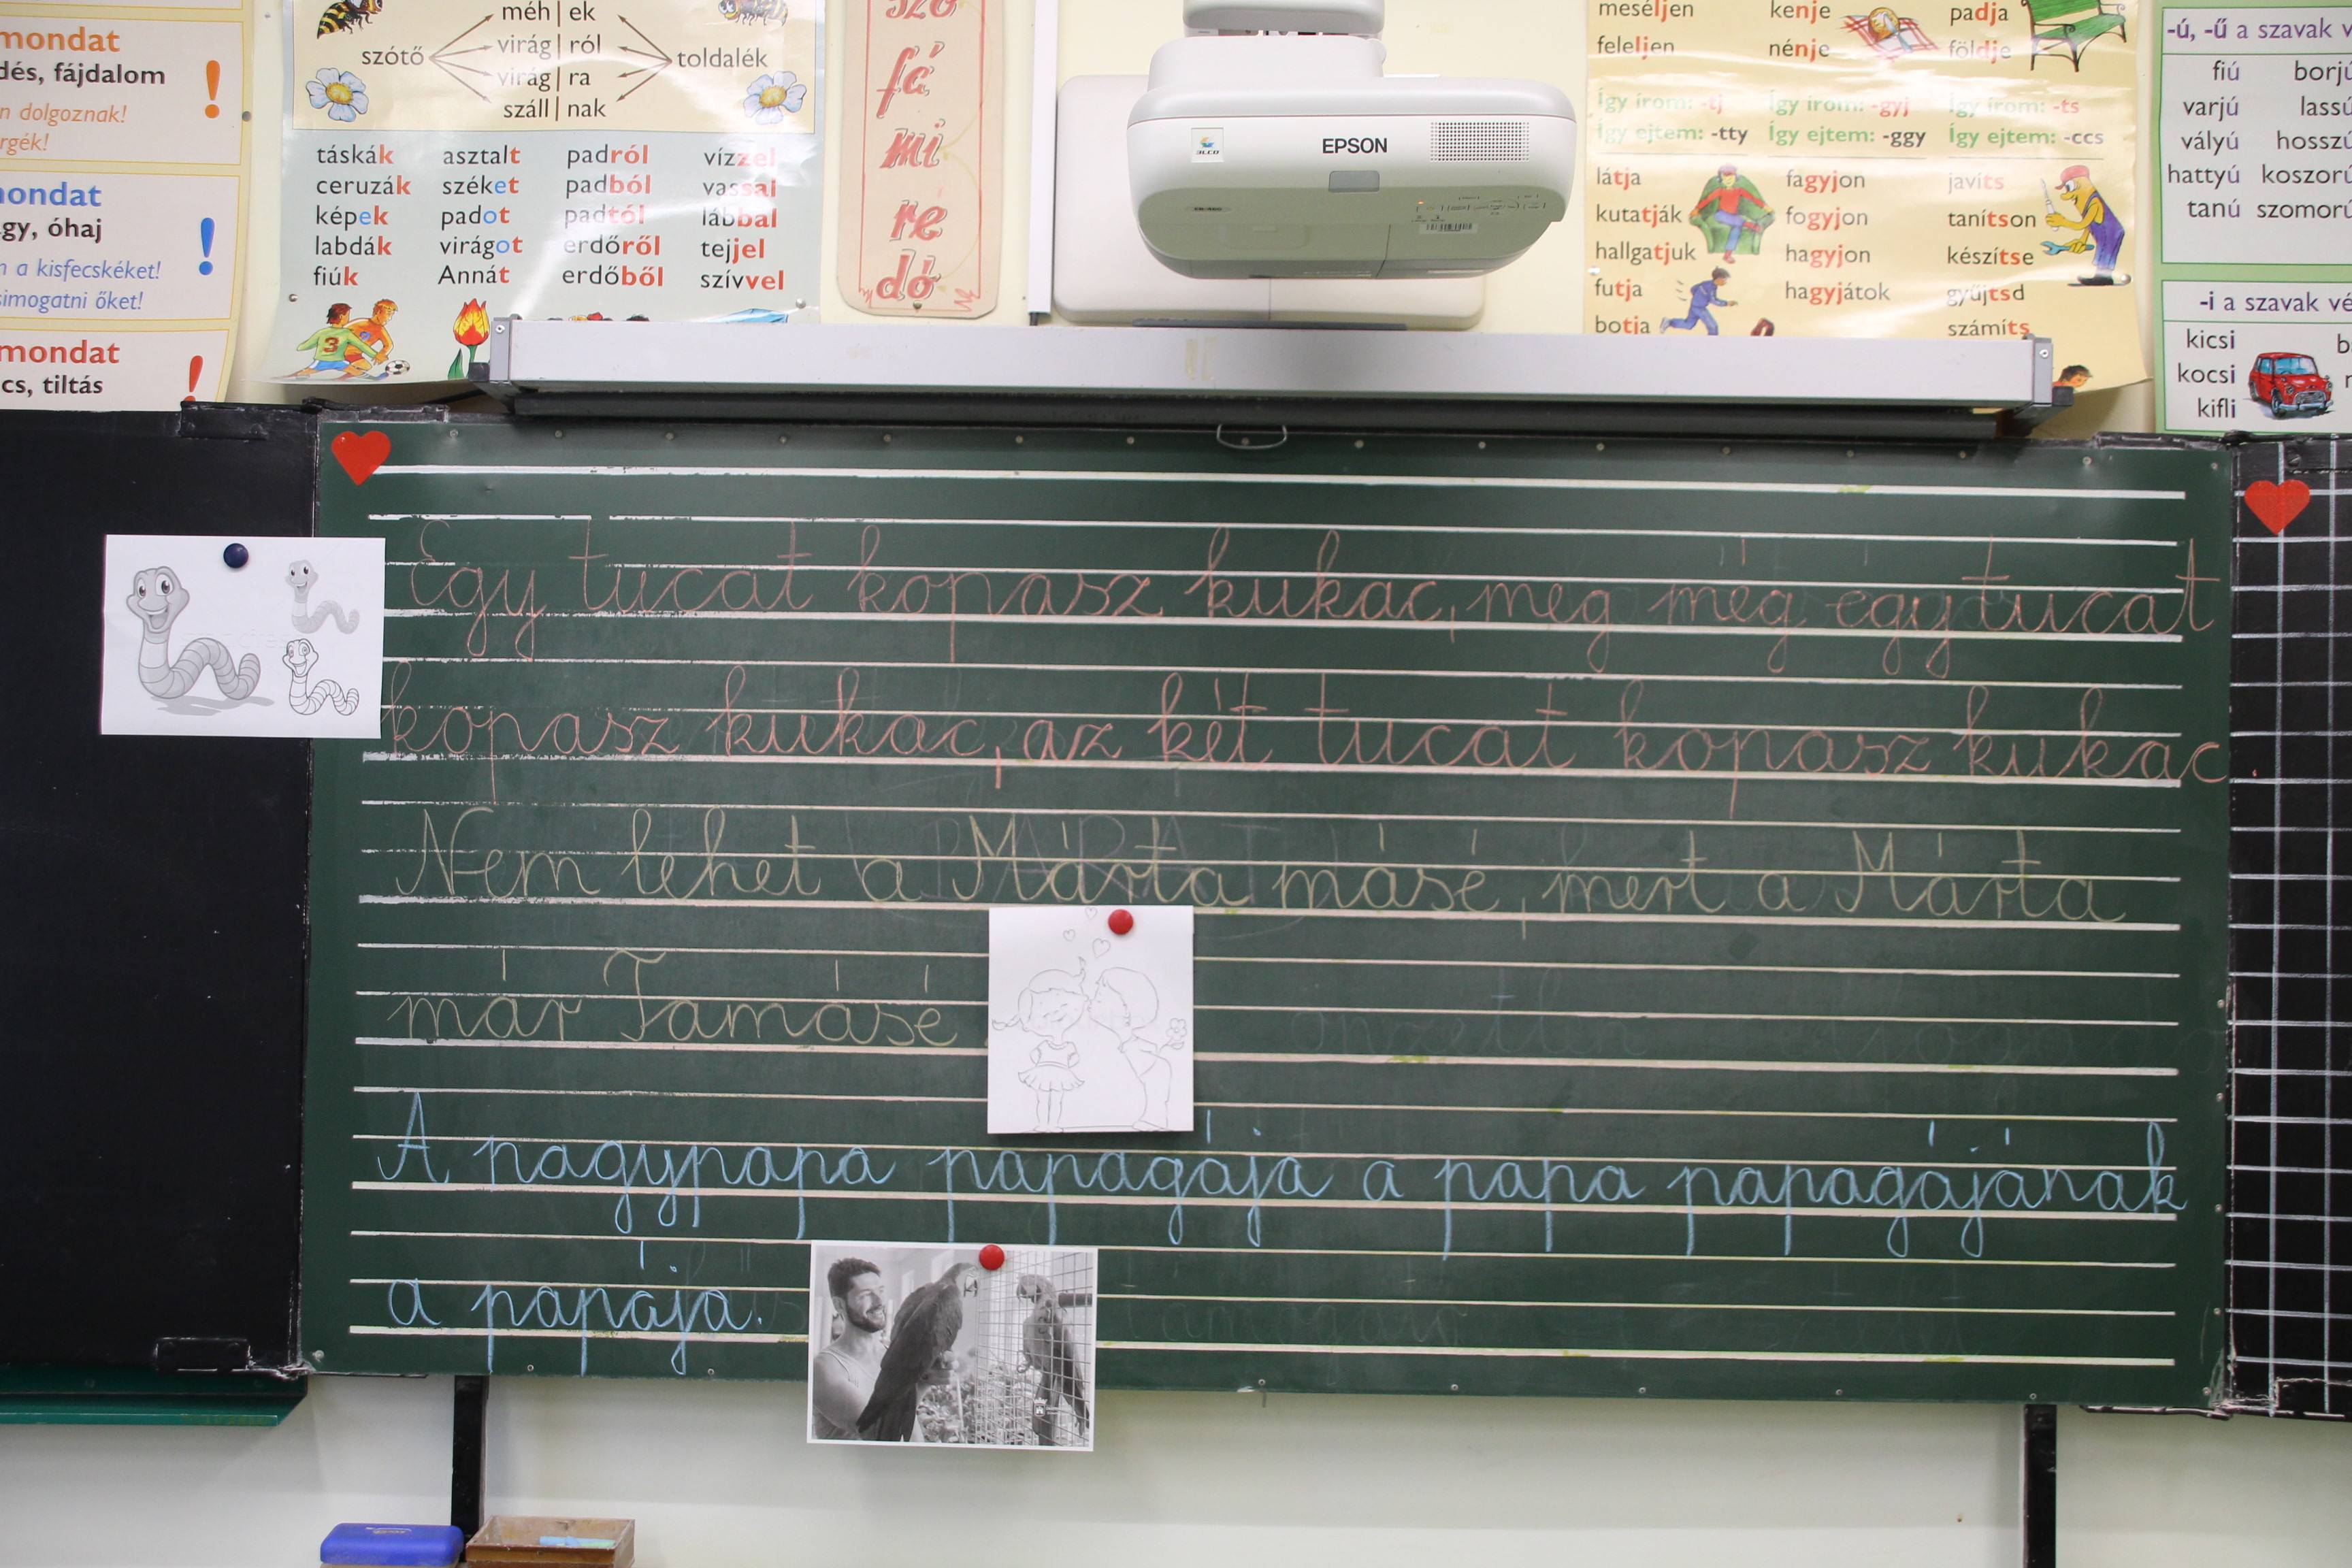 mondat
dés, fájdalom
n dolgoznak!
rgék!
!
mondat
gy, óhaj
n a kisfecskéket!
simogatni őket!
!
mondat
cs, tiltás
!
szótő
méh | ek
virág | ról
virág | ra
száll | nak
toldalék
táskák asztalt padról vízzel
ceruzák széket padból vassal
képek padot padtól lábbal
labdák virágot erdőről tejjel
fiúk Annát erdőből szívvel
3
szó
fá
mi
re
dó
3LCD
EPSON
meséljen kenje padja
feleljen nénje földje
Így írom: -tj Így írom: -gyj Így írom: -ts
Így ejtem: -tty Így ejtem: -ggy Így ejtem: -ccs
látja fagyjon javíts
kutatják fogyjon tanítson
hallgatjuk hagyjon készítse
futja hagyjátok gyűjtsd
botja számíts
-ú, -ű a szavak v
fiú borjú
varjú lassú
vályú hosszú
hattyú koszorú
tanú szomorú
-i a szavak vé
kicsi b
kocsi
kifli
Egy tucat kopasz kukac, meg még egy tucat
kopasz kukac, az két tucat kopasz kukac.
Nem lehet a Márta másé, mert a Márta
már Tamásé
A nagypapa papagája a papa papagájának
a papája.